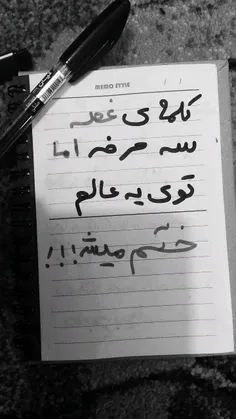 MEMO STYLE
کلمه ی غصه
سه حرفه اما
توی یه عالم
ختم میشه!!!